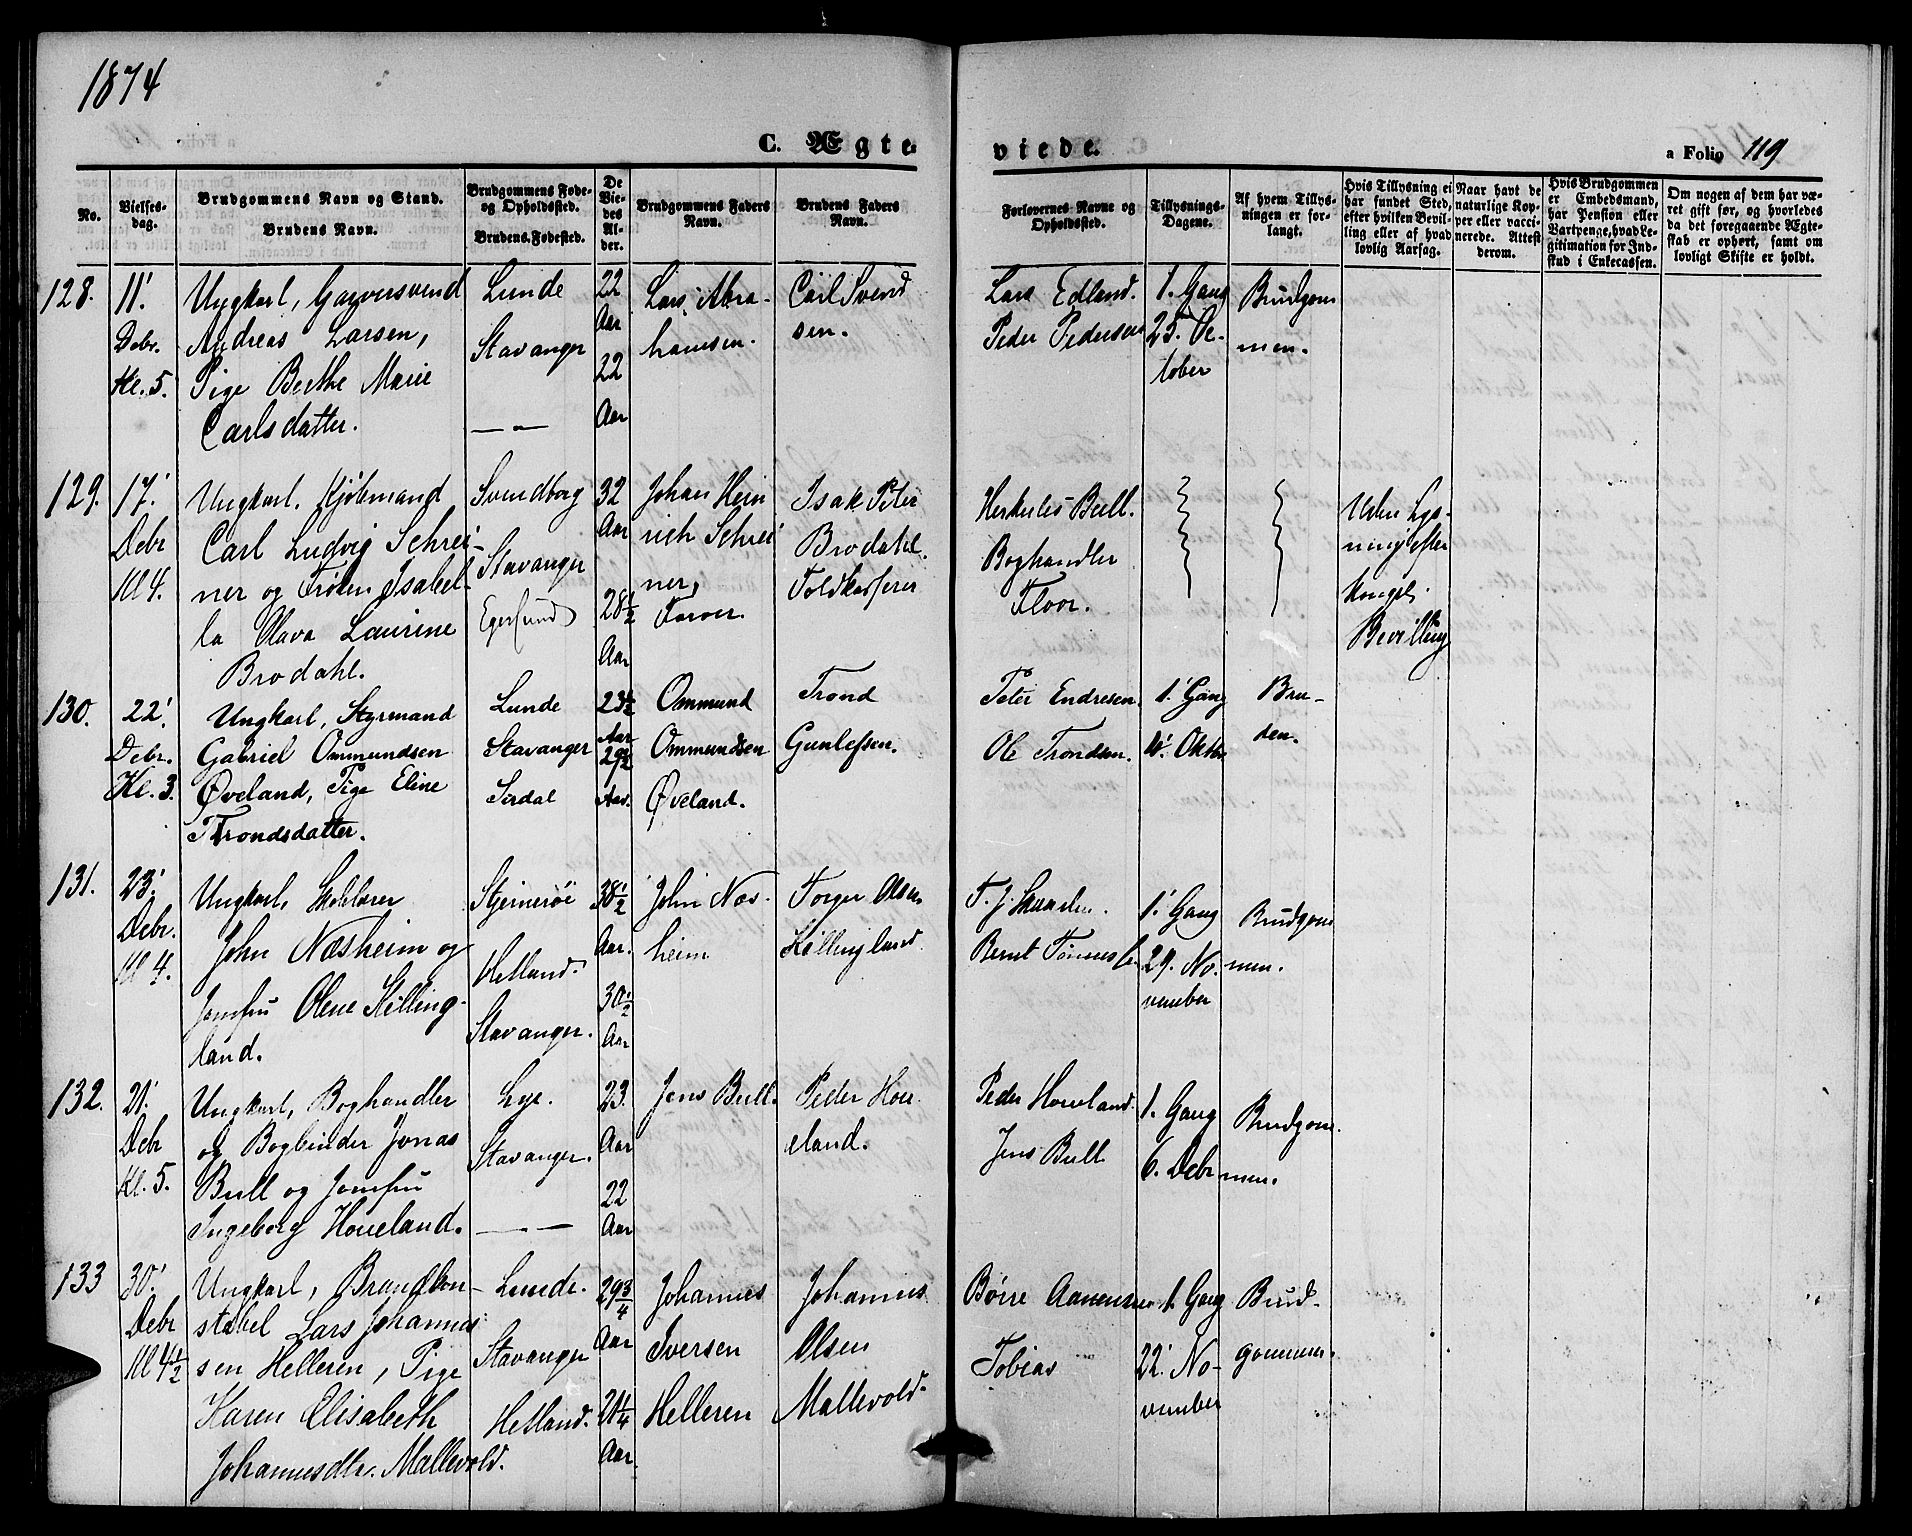 1874
C. Ægte viede.
a Folio 119
No.
Vielses-
dag.
Brudgommens Navn og Stand.
Brudens Navn.
Brudgommens Føde-
og Opholdssted.
Brudens Fødested.
De
Vie-
des
Al-
der.
Brudgommens Faders
Navn.
Brudens Faders
Navn.
Forlovernes Navne og
Opholdssted.
Tillysnings-
Dagene.
Af hvem Tillys-
ningen er for-
langt.
Hvis Tillysning ei
har fundet Sted,
efter hvilken Bevil-
ling eller af hvad
lovlig Aarsag.
Naar havt de
naturlige Kop-
per eller vacci-
nerede. Attest
derom.
Hvis Brudgommen
er Embedsmand,
har Pension eller
Vartpenge, hvad Le-
gitimation for Ind-
skud i Enkecassen.
Om nogen af dem har væ-
ret gift før, og hvorledes
da det foregaaende Ægte-
skab er ophørt, samt om
lovligt Skifte er holdt.
128.
11'
Debr.
Kl. 5.
Ungkarl, Garversvend
Andreas Larsen,
Pige Berthe Marie
Carlsdatter.
Lunde
Stavanger
— —
22
Aar
22
Aar
Lars Abra-
hamsen.
Carl Svend
sen.
Lars Edland.
Peder Pedersen
1. Gang
25. Oc-
tober
Brudgom
men.
129.
17'
Debr
Kl 4.
Ungkarl, Kjøbmand
Carl Ludvig Schrei-
ner og Frøken Isabel-
la Olava Laurine
Brodahl.
Svendborg
Stavanger
Egersund
32
Aar
28 1/2
Aar
Johan Hein
rich Schrei
ner,
Farver.
Isak Peter
Brodahl.
Toldkasserer
Herkules Bull.
Boghandler
Floor.
Uden Lys-
ning efter
kongel.
Bevilling
130.
22'
Debr.
Kl. 3.
Ungkarl, Styrmand
Gabriel Ommundsen
Øveland, Pige Eline
Trondsdatter.
Lunde
Stavanger
Sirdal
23 1/2
Aar
29 1/2
Aar.
Ommund
Ommundsen
Øveland.
Trond
Gunlefsen.
Peter Endresen
Ole Trondsen.
1' Gang
Oktbr
Bru-
den.
131.
23'
Debr.
Kl 4.
Ungkarl, Skolelærer
John Næsheim og
Jomfru Olene Skilling-
land.
Stjernerøi
Hetland.
Stavanger.
38 1/2
Aar.
30 1/2
Aar
John Næs-
heim
Torger Olsen
Skillingland.
1' Gang
29. No-
vember
Brudgom
men.
132.
21'
Debr
Kl. 5.
Ungkarl, Boghandler
og Bogbinder Jonas
Bull og Jomfru
Ingeborg Houeland.
Lye.
Stavanger.
— —
23.
Aar
22
Aar
Jens Bull.
Peder Hou-
eland.
Peder Houeland.
Jens Bull
1. Gang
6. Debr
Brudgom-
men.
133
30'
Debr
Kl 4 1/2
Ungkarl, Brandkon-
stabel Lars Johannes-
sen Helleren, Pige
Karen Elisabeth
Johannesdtr. Mallevold.
Lunde.
Stavanger
Hetland.
29 3/4
Aar
21 1/4
Aar
Johannes
Iversen
Helleren
Johannes
Olsen
Mallevold.
Børre Aanensen
Tobias
1. Gang
22' No-
vember
Brud-
gommen.